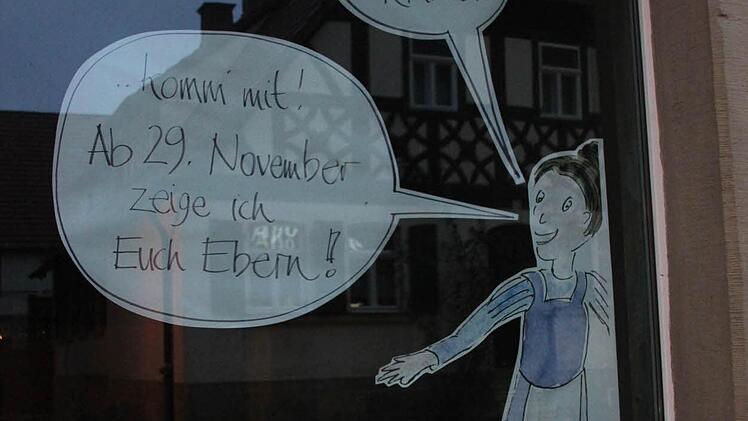 ..komm mit!
Ab 29. November
zeige ich
Euch Ebern!!